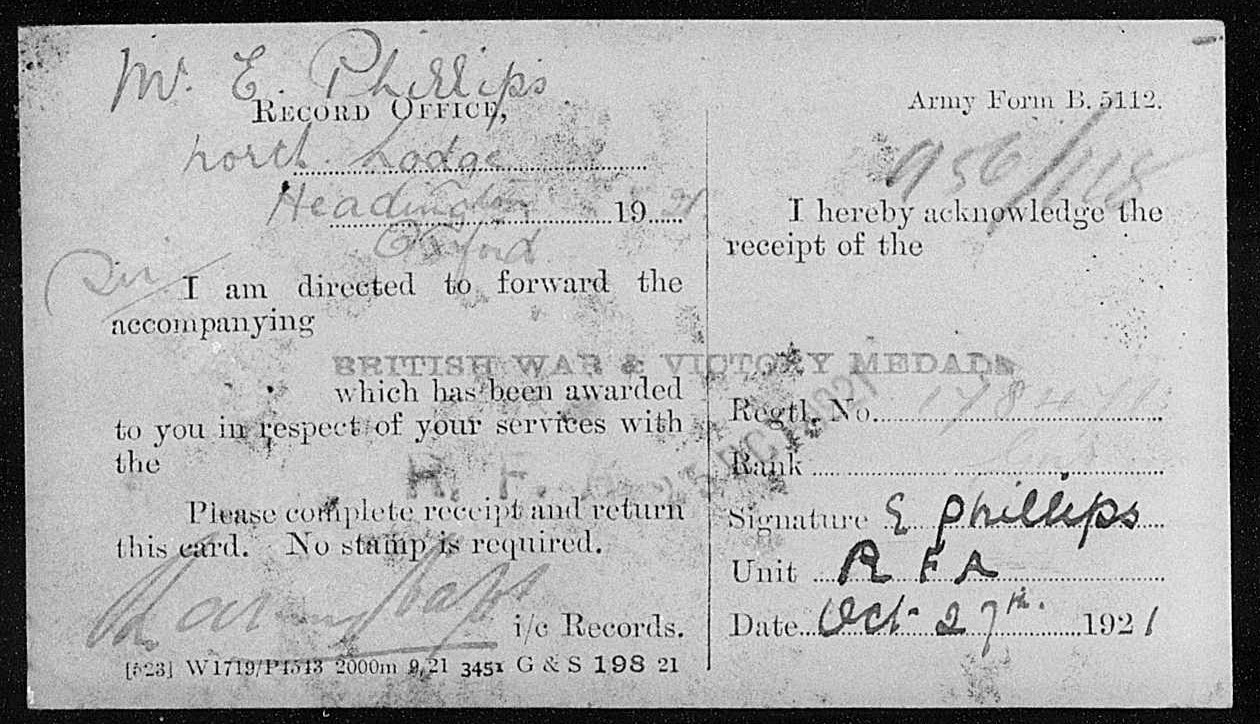 Mr. E. Phillips
RECORD OFFICE,
North Lodge
Headington 19 21
Oxford
Sir
I am directed to forward the
accompanying
BRITISH WAR & VICTORY MEDALS
which has been awarded
to you in respect of your services with
the
R. F. A.
Please complete receipt and return
this card. No stamp is required.
Capt
i/c Records.
[523] W1719/P1513 2000m 9/21 3451 G & S 198 21
Army Form B. 5112.
956/1118
I hereby acknowledge the
receipt of the
Regtl. No.
Rank
Signature E Phillips
Unit R F A
Date Oct 27th. 1921